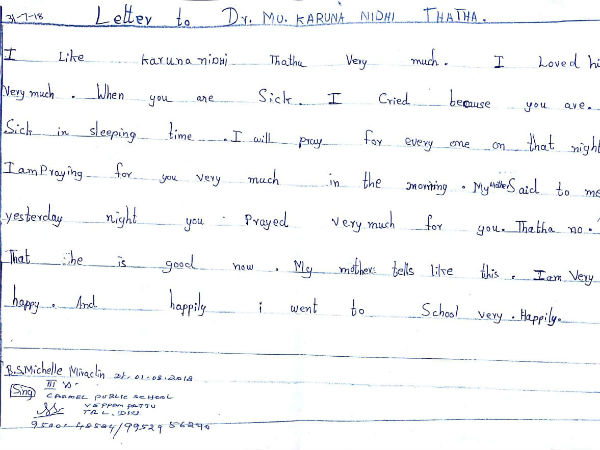 31-7-18 Letter to Dr. MU. KARUNA NIDHI THATHA.
I Like Karuna NIDHI Thatha Very much. I Loved hi
Very much. When you are Sick. I Cried because you are.
Sick in sleeping time. I will pray for every one on that night
I am Praying for you very much in the morning. My mother Said to me
yesterday night you Prayed very much for you. Thatha no.
That he is good now. My mothers tells like this. I am Very
happy. And happily i went to School very. Happily.
B.S. Michelle Miraclin 01-08-2018
III 'A'
Sing CARMEL PUBLIC SCHOOL
VEPPAMPATTU